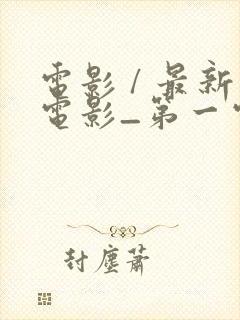 電影/最新
電影_第一
封塵蕭